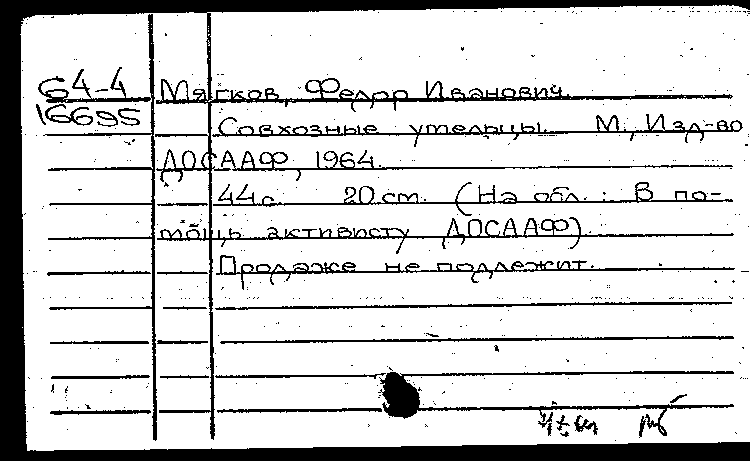 64-4 Мягков, Федор Иванович.
16695 Совхозные умельцы. М., Изд-во
ДОСААФ, 1964.
44 с. 20 см. (На обл.: В по-
мощь активисту ДОСААФ).
Продаже не подлежит.